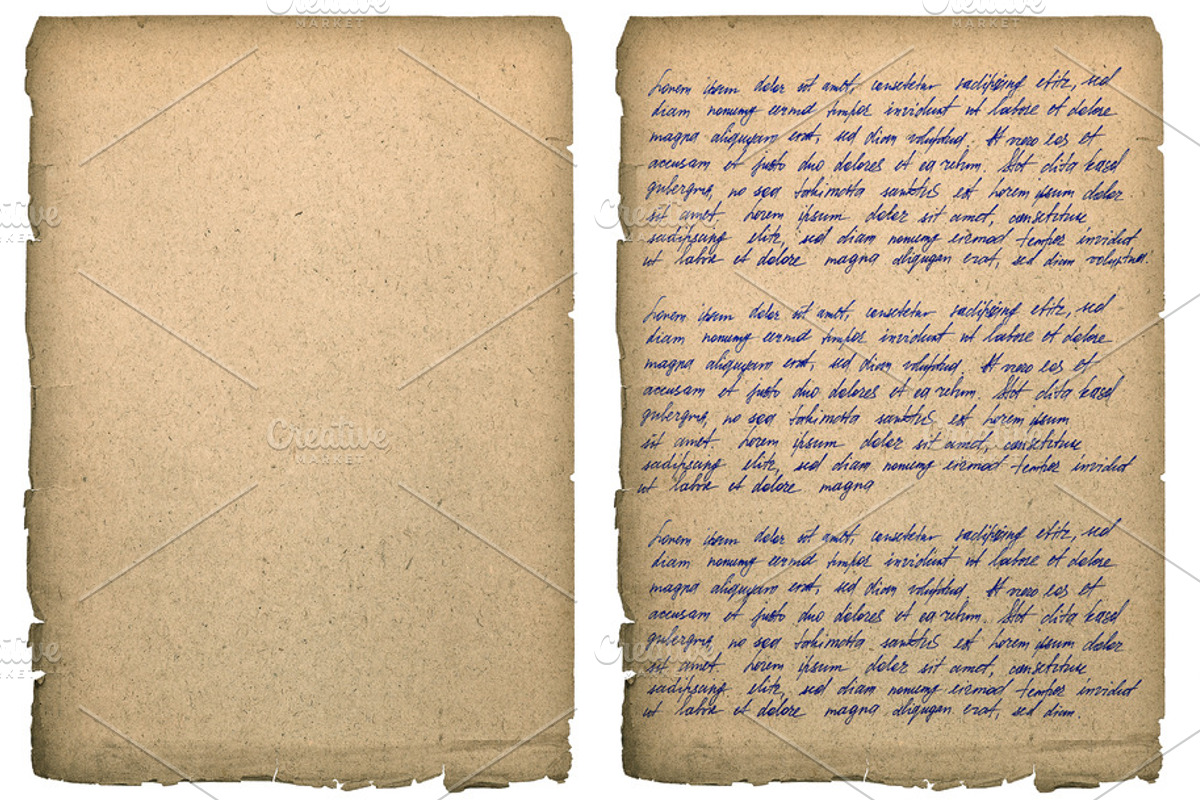 Lorem ipsum dolor sit amet, consetetur sadipscing elitr, sed
diam nonumy eirmod tempor invidunt ut labore et dolore
magna aliquyam erat, sed diam voluptua. At vero eos et
accusam et justo duo dolores et ea rebum. Stet clita kasd
gubergren, no sea takimata sanctus est Lorem ipsum dolor
sit amet. Lorem ipsum dolor sit amet, consetetur
sadipscing elitr, sed diam nonumy eirmod tempor invidut
ut labor et dolore magna aliquyam erat, sed diam voluptua.
Lorem ipsum dolor sit amet, consetetur sadipscing elitr, sed
diam nonumy eirmod tempor invidunt ut labore et dolore
magna aliquyam erat, sed diam voluptua. At vero eos et
accusam et justo duo dolores et ea rebum. Stet clita kasd
gubergren, no sea takimata sanctus est Lorem ipsum
sit amet. Lorem ipsum dolor sit amet, consetetur
sadipscing elitr, sed diam nonumy eirmod tempor invidut
ut labor et dolore magna
Lorem ipsum dolor sit amet, consetetur sadipscing elitr, sed
diam nonumy eirmod tempor invidunt ut labore et dolore
magna aliquyam erat, sed diam voluptua. At vero eos et
accusam et justo duo dolores et ea rebum. Stet clita kasd
gubergren, no sea takimata sanctus est Lorem ipsum dolor
sit amet. Lorem ipsum dolor sit amet, consetetur
sadipscing elitr, sed diam nonumy eirmod tempor invidut
ut labor et dolore magna aliquyam erat, sed diam.
Creative
MARKET